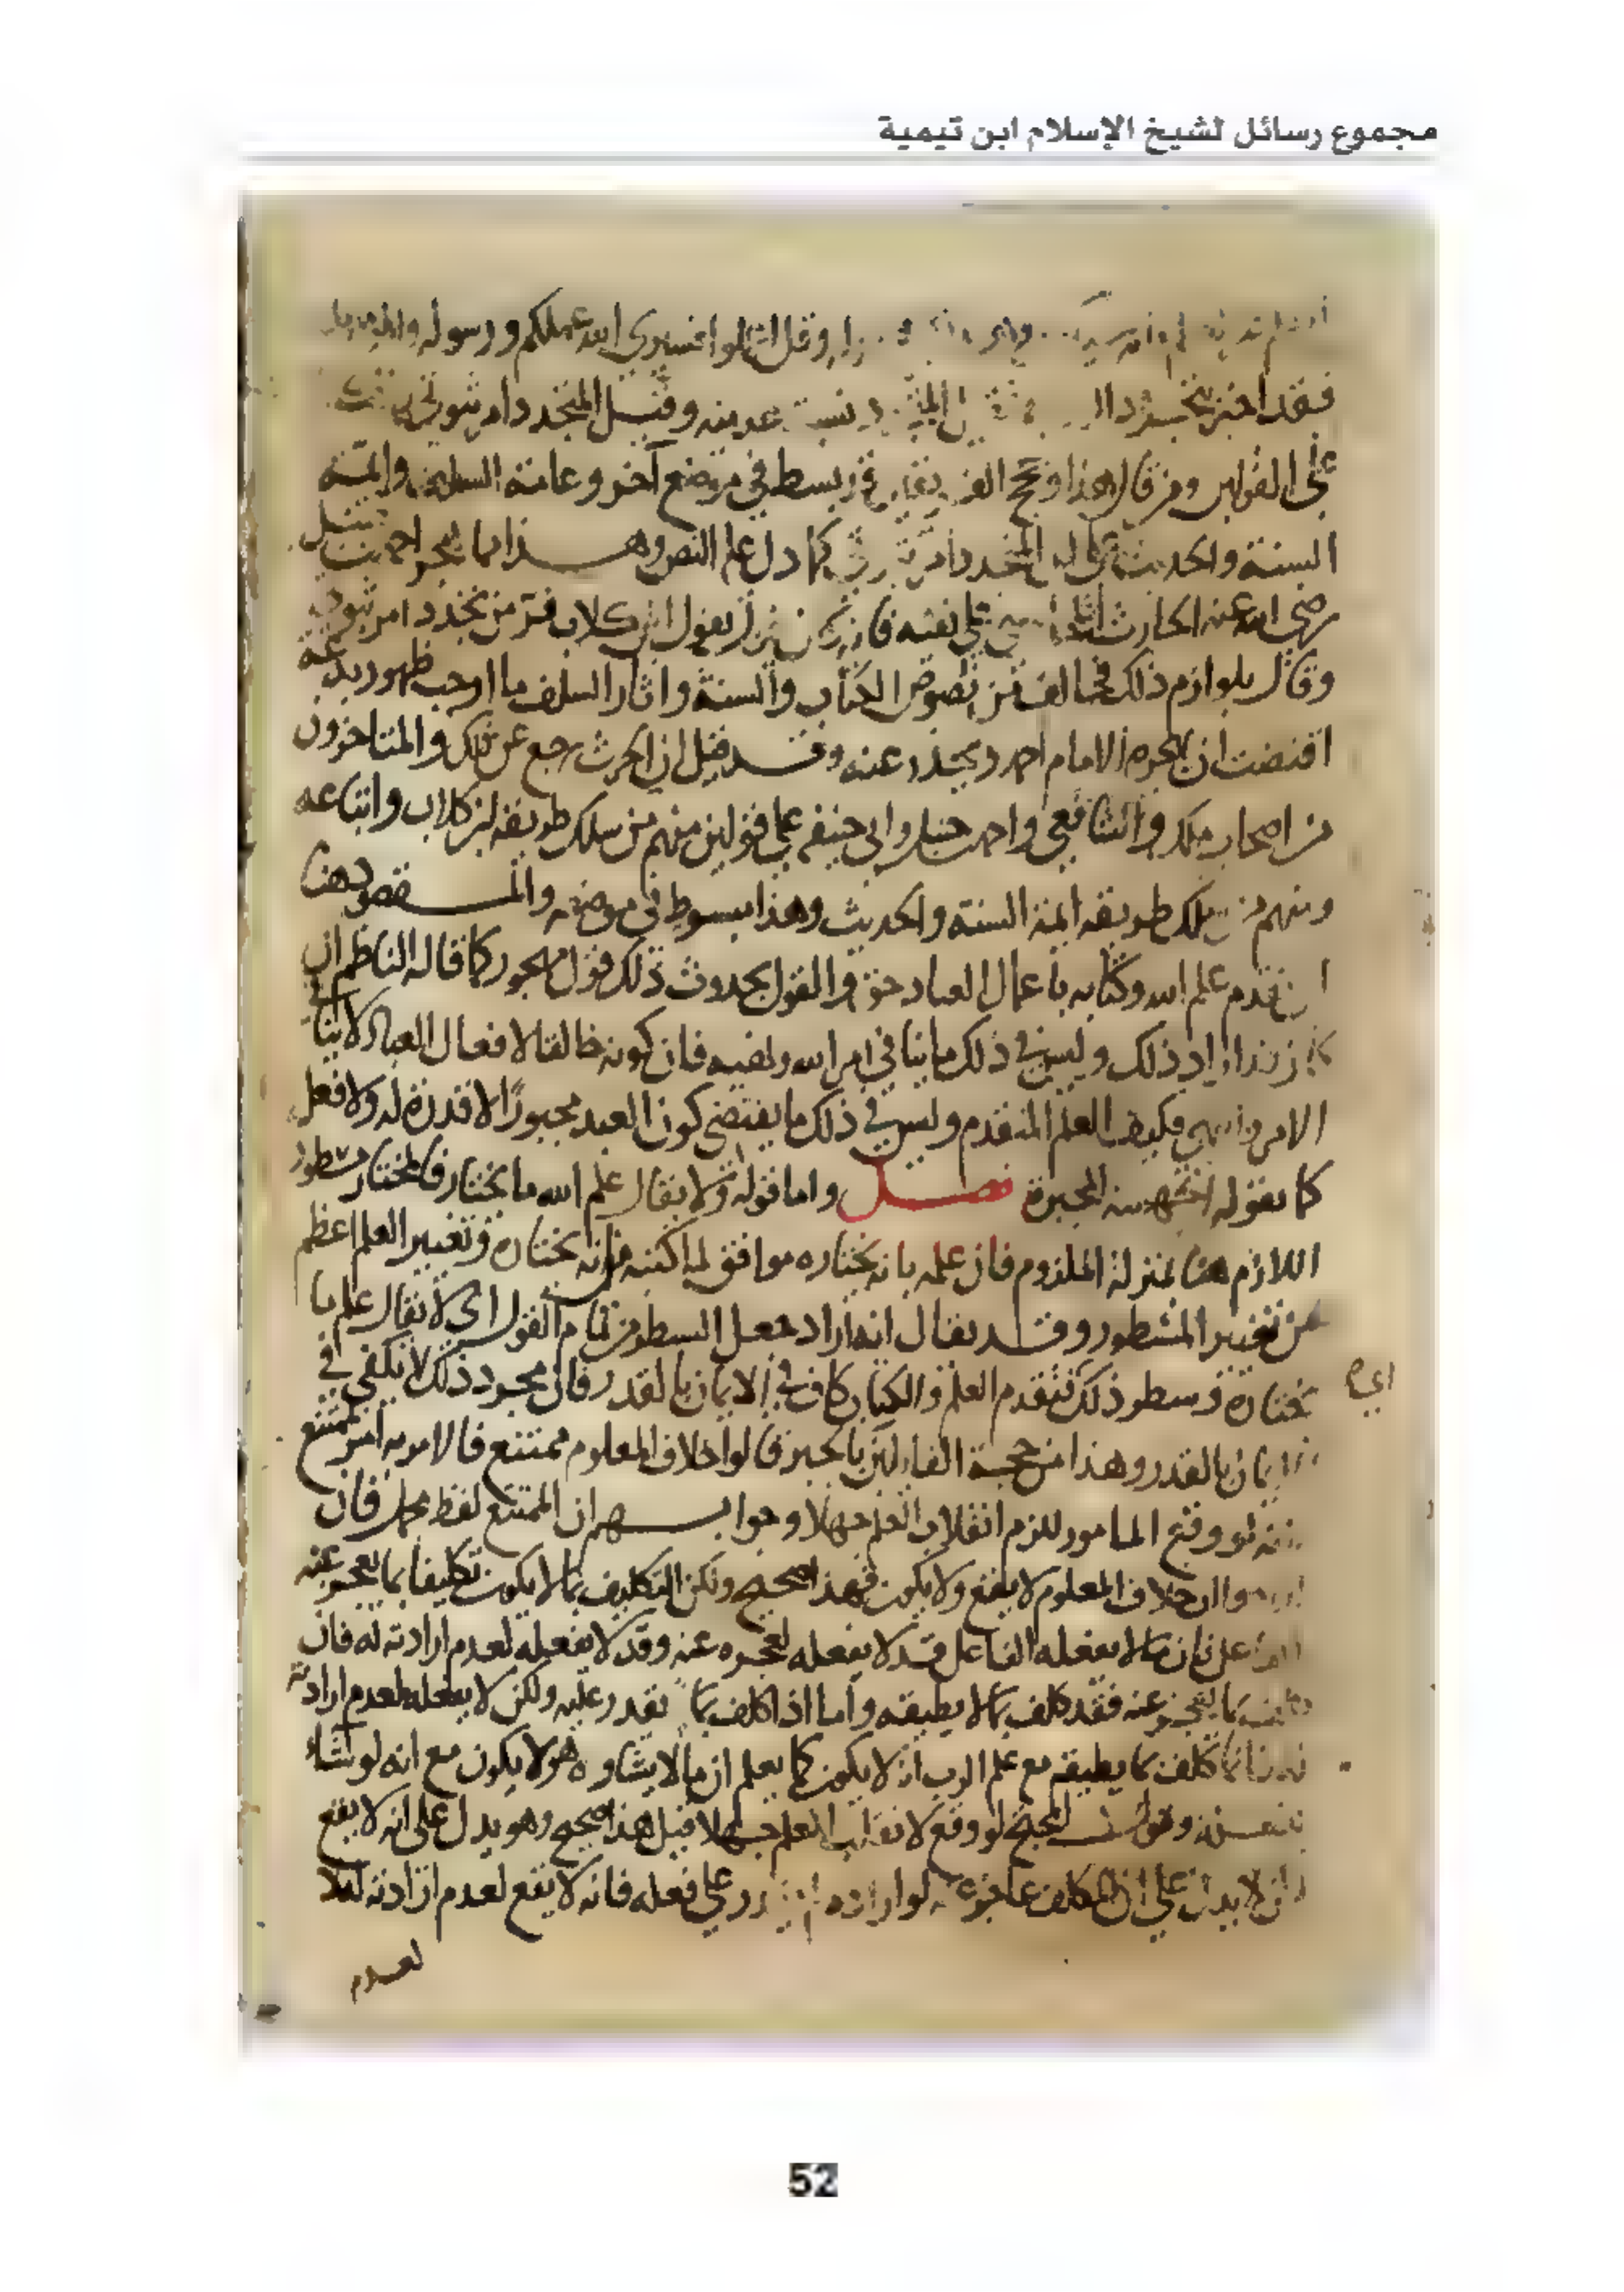 مجموع رسائل لشيخ الإسلام ابن تيمية
وقل اعملوا فسيرى الله عملكم ورسوله
فقد اخبر بتجدد نسبة عدمية وقيل المتجدد امر ثبوتي
على القولين ومن قال هذا وحجج الفريقين قد بسط في موضع آخر وعامة السلف وايمة
السنة والحديث على ان المتجدد امر ثبوتي كما دل عليه النص وهذا مما هجر احمد بن حنبل
رضي الله عنه الحارث المحاسبي على نفيه فانه كان يقول بقول ابن كلاب فر من تجدد امر ثبوتي
وقال بلوازم ذلك فخالف من نصوص الكتاب والسنة واثار السلف ما اوجب ظهور بدعة
اقتضت ان يهجره الامام احمد ويحذر عنه وقد قيل ان الحرث رجع عن ذلك والمتاخرون
من اصحاب ملك والشافعي واحمد بن حنبل وابي حنيفه على قولين منهم من سلك طريقه ابن كلاب واتباعه
ومنهم من سلك طريقه ايمة السنة والحديث وهذا مبسوط في موضعه والمقصود هنا
ان تقدم علم الله وكتابه باعمال العباد حق والقول بحدوث ذلك قول مهجور كما قاله الناظم ان
كان اراد ذلك وليس في ذلك ما ينافي امر الله ونهيه فان كونه خالقا لافعال العباد لا ينافي
الامر والنهي فكيف العلم المتقدم وليس في ذلك ما يقتضي كون العبد مجبورا لا قدرة له ولا فعل
كما يقوله الجهمية المجبرة فصل واما قوله ولا يقال علم الله ما يختار فالمختار مسطور
اللازم هنا بمنزلة الملزوم فان علمه بانه يختاره موافق لما كتبه من انه يختاره وتغيير العلم اعظم
من تغيير المسطور وقد يقال انه اراد جعل السطور من تمام القول اي لا يقال علم ما
يختاره وسطر ذلك فتقدم العلم والكتاب كاف في الايمان بالقدر فان مجرد ذلك لا يكفي في
اي
الايمان بالقدر وهذا من حجة القايلين بالجبر قالوا خلاف المعلوم ممتنع فالامر به امر بممتنع
فانه لو وقع المامور للزم انقلاب العلم جهلا وجوابهم ان الممتنع لفظ مجمل فان
ارادوا ان خلاف المعلوم لا يقع ولا يكون فهذا صحيح ولكن التكليف بما لا يكون تكليفا بما يعجز عنه
الفاعل فان ما لا يفعله الفاعل قد لا يفعله لعجزه عنه وقد لا يفعله لعدم ارادته له فان
كلف بما يعجز عنه فقد كلف بما لا يطيقه واما اذا كلف بما يقدر عليه ولكن لا يفعله لعدم ارادته
فهذا انما كلف بما يطيقه مع علم الرب انه لا يكون كما يعلم ان ما لا يشاوه هو لا يكون مع انه لو شاء
لفعله وقول المحتج لو وقع لانقلب العلم جهلا قيل هذا صحيح وهو يدل على انه لا يقع
لكن لا يدل على ان المكلف عاجز عنه لو اراده لم يقدر على فعله فانه لا يقع لعدم ارادته له لا
لعدم
52